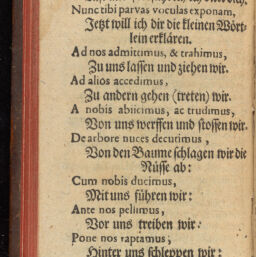 Nunc tibi parvas voculas exponam,
Jetzt will ich dir die kleinen Wört-
lein erklären.
Ad nos admittimus, & trahimus,
Zu uns lassen und ziehen wir.
Ad alios accedimus,
Zu andern gehen (treten) wir.
A nobis abiicimus, ac trudimus,
Von uns werffen und stossen wir.
De arbore nuces decutimus,
Von den Baume schlagen wir die
Nüsse ab:
Cum nobis ducimus,
Mit uns führen wir:
Ante nos pellimus,
Vor uns treiben wir:
Pone nos raptamus,
Hinter uns schleppen wir: